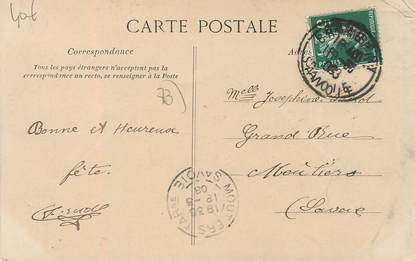 40€
CARTE POSTALE
Correspondance
Tous les pays étrangers n'acceptent pas la
correspondance au recto, se renseigner à la Poste
73
Bonne & Heureuse
fête.
Melle Joséphine
Grand Rue
Moûtiers
(Savoie
MOUTIERS
SAVOIE